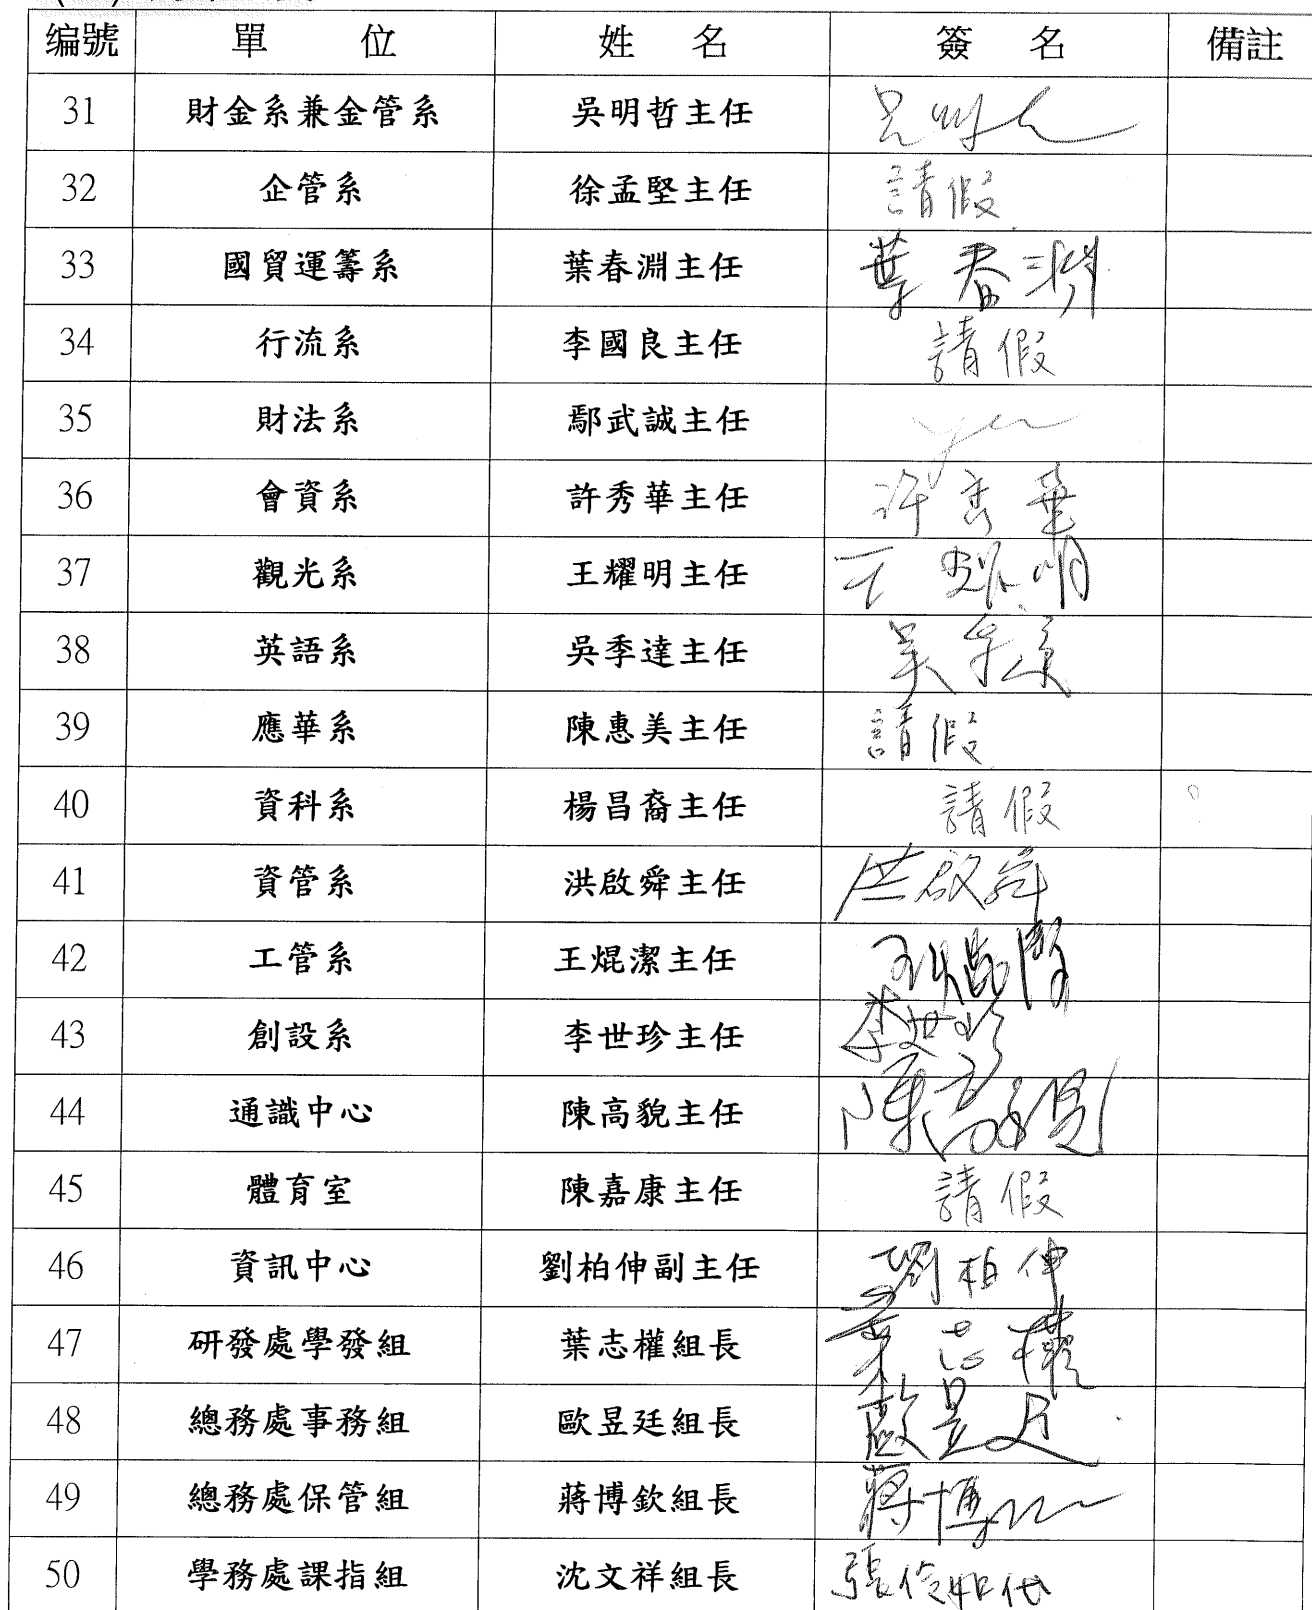 編號 單 位 姓 名 簽 名 備註
31 財金系兼金管系 吳明哲主任
32 企管系 徐孟堅主任 請假
33 國貿運籌系 葉春淵主任 葉春淵
34 行流系 李國良主任 請假
35 財法系 鄢武誠主任 yen
36 會資系 許秀華主任 許秀華
37 觀光系 王耀明主任 王耀明
38 英語系 吳季達主任 吳季達
39 應華系 陳惠美主任 請假
40 資科系 楊昌裔主任 請假
41 資管系 洪啟舜主任 洪啟舜
42 工管系 王焜潔主任 王焜潔
43 創設系 李世珍主任 李世珍
44 通識中心 陳高貌主任 陳高貌
45 體育室 陳嘉康主任 請假
46 資訊中心 劉柏伸副主任 劉柏伸
47 研發處學發組 葉志權組長 葉志權
48 總務處事務組 歐昱廷組長 歐昱廷
49 總務處保管組 蔣博欽組長 蔣博
50 學務處課指組 沈文祥組長 張伶如代